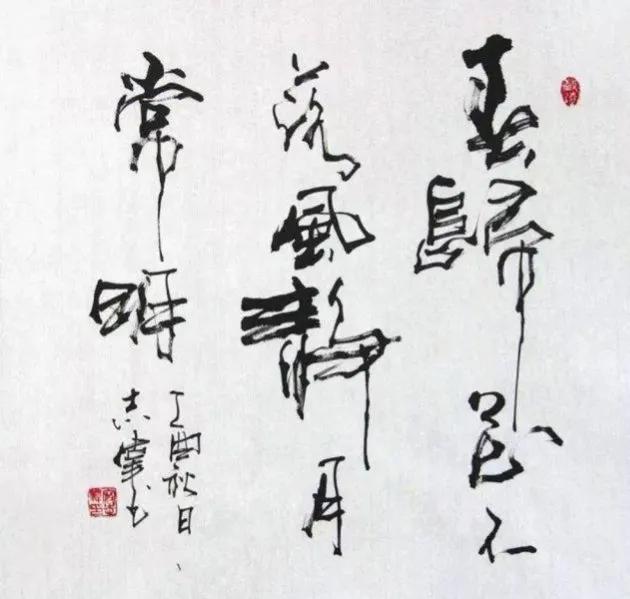 春歸花不
落風靜月
常明
丁酉秋日
志軍书